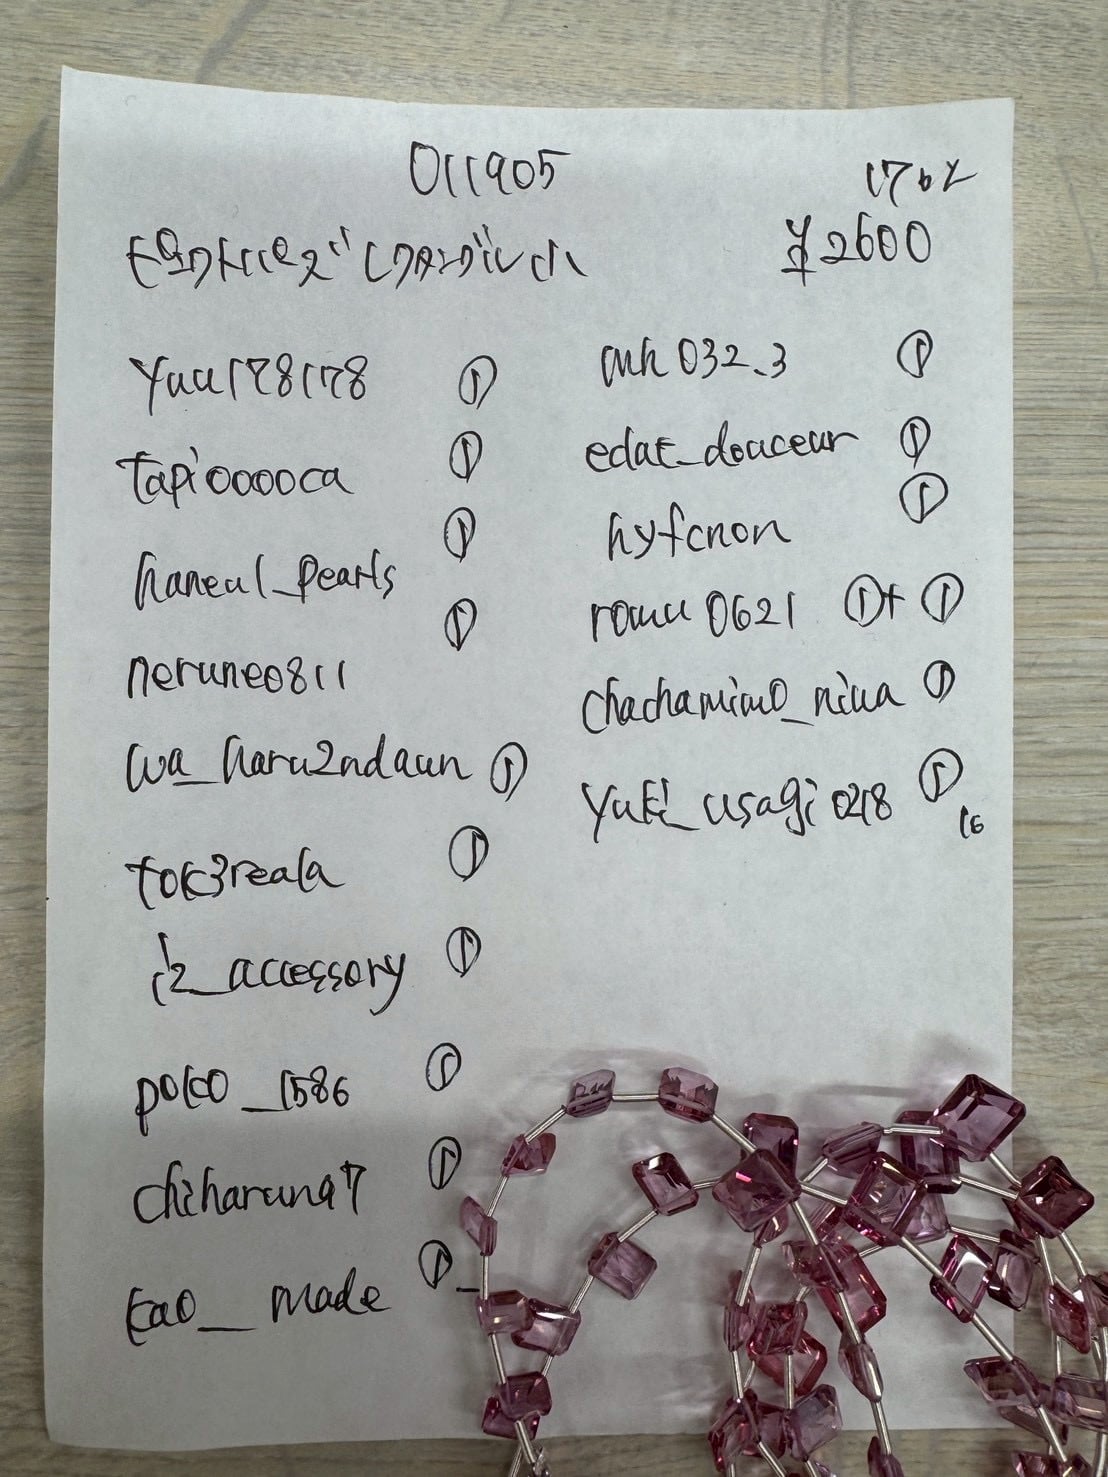 011905
17コ
¥2600
モルガナイトクォーツ レクタングル 小
yuu178178 ①
tapiooooca ①
haneul_pearls ①
nerune0811 ①
wa_haru2ndaun ①
tok3reala ①
i2_accessory ①
poko_1586 ①
chiharuna7 ①
kao__made ①
mh032_3 ①
edat_douceur ①
hyfcnon ①
romu0621 ①+①
chachamimo_niua ①
yuki_usagi0218 ①
16